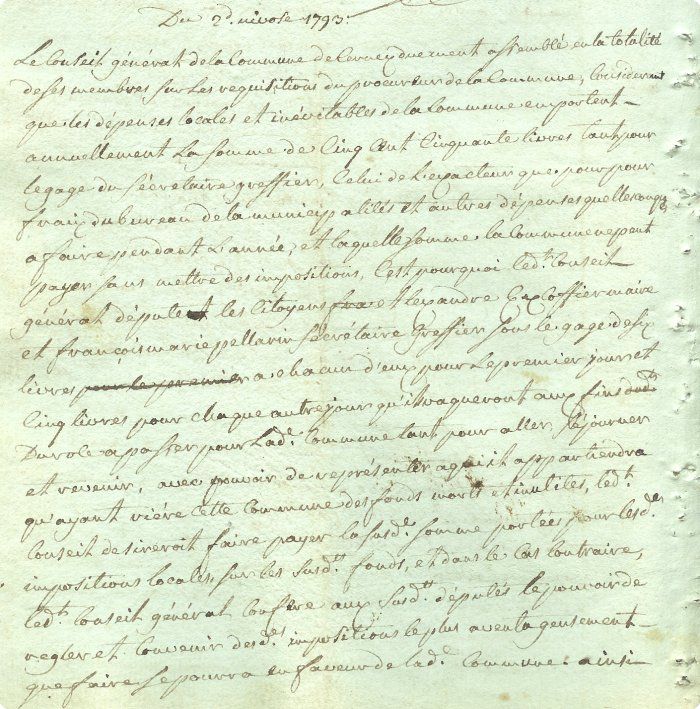 Du 2d. nivose 1793.
Le Conseil général de la Commune de Cerney duement assemblé en la totalité
de ses membres sur Les requisitions du procureur de la Commune, Considerant
que les dépenses locales et inévitables de la Commune emportent
annuellement La somme de Cinq Cent Cinquante livres tant pour
le gage du Sécrétaire greffier, Celui de L'exacteur que pour pour
fraix du bureau de la municipalités et autres dépenses quelleconque
a faire pendant L'année, et laquelle somme la Commune ne peut
payer sans mettre des impositions, C'est pourquoi led.t Conseil
général députe et les Citoyens fra et Alexandre Coffier maire
et françois marie pellarin Sécrétaire Greffier sous le gage de six
livres pour le premier a chacun d'eux pour Le premier jour et
Cinq livres pour chaque autre jour qu'il vaqueront aux fins dud.t
Du role a passer pour Lad.e Commune tant pour aller, Séjourner
et revenir, avec pouvoir de représenter a qui il appartiendra
qu'ayant rière Cette Commune des fonds morts et inutiles, led.t
Conseil desireroit faire payer la susd.e somme portées pour lesd.es
impositions locales sur les susd.ts fonds, et dans le Cas Contraire,
led.t Conseil général Confere aux susd.ts députés le pouvoir de
regler et Convenir desd.es impositions le plus aventagensement
que faire se pourra en faveur de lad.e Commune ainsi